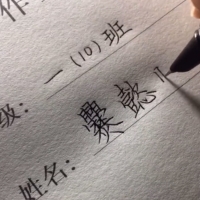 作
级: 一(10)班
姓名: 懿